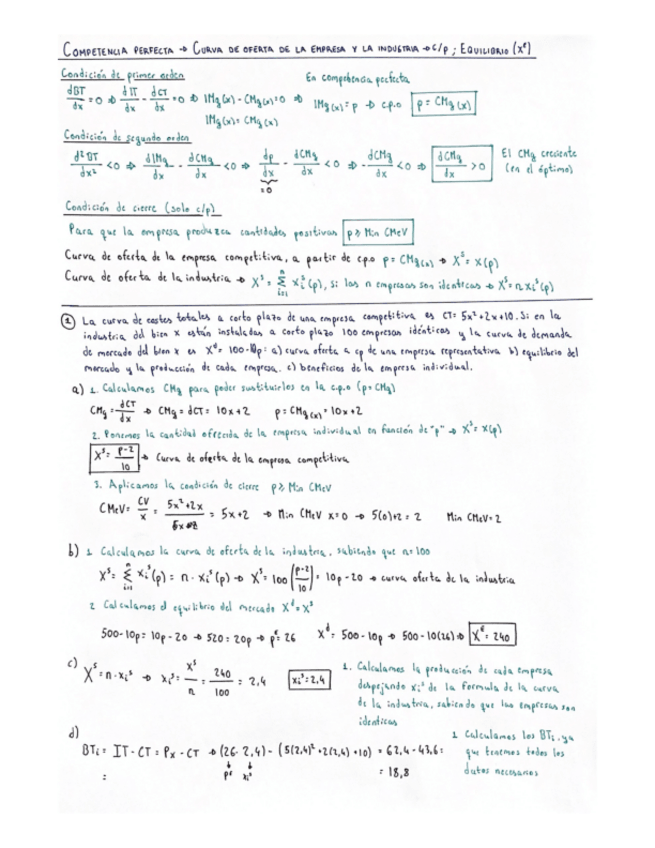 COMPETENCIA PERFECTA → CURVA DE OFERTA DE LA EMPRESA Y LA INDUSTRIA → c/p ; EQUILIBRIO (Xᵉ)
Condición de primer orden
En competencia perfecta
dBT/dx = 0 ⇒ dIT/dx - dCT/dx = 0 ⇒ IMg(x) - CMg(x) = 0 ⇒ IMg(x) = p → c.p.o p = CMg(x)
IMg(x) = CMg(x)
Condición de segundo orden
d²BT/dx² < 0 ⇒ dIMg/dx - dCMg/dx < 0 ⇒ dp/dx - dCMg/dx < 0 ⇒ - dCMg/dx < 0 ⇒ dCMg/dx > 0 El CMg creciente
(en el óptimo)
= 0
Condición de cierre (solo c/p)
Para que la empresa produzca cantidades positivas p ≥ Min CMeV
Curva de oferta de la empresa competitiva, a partir de c.p.o p = CMg(x) → Xˢ = x(p)
Curva de oferta de la industria → Xˢ = Σⁿᵢ₌₁ xᵢˢ(p), si las n empresas son identicas → Xˢ = n xᵢˢ(p)
① La curva de costes totales a corto plazo de una empresa competitiva es CT = 5x²+2x+10. Si en la
industria del bien x están instaladas a corto plazo 100 empresas idénticas y la curva de demanda
de mercado del bien x es Xᵈ = 100-10p: a) curva oferta a cp de una empresa representativa b) equilibrio del
mercado y la producción de cada empresa. c) beneficios de la empresa individual.
a) 1. Calculamos CMg para poder sustituirlos en la c.p.o (p = CMg)
CMg = dCT/dx → CMg = dCT = 10x+2 p = CMg(x) = 10x+2
2. Ponemos la cantidad ofrecida de la empresa individual en función de "p" → Xˢ = x(p)
Xˢ = p-2/10 → Curva de oferta de la empresa competitiva
3. Aplicamos la condición de cierre p ≥ Min CMeV
CMeV = CV/x = 5x²+2x = 5x+2 → Min CMeV x=0 → 5(0)+2 = 2 Min CMeV = 2
b) 1. Calculamos la curva de oferta de la industria, sabiendo que n=100
Xˢ = Σⁿᵢ₌₁ xᵢˢ(p) = n · xᵢˢ(p) → Xˢ = 100 (p-2/10) = 10p-20 → curva oferta de la industria
2 Calculamos el equilibrio del mercado Xᵈ = Xˢ
500-10p = 10p-20 → 520 = 20p → pᵉ = 26 Xᵈ = 500-10p → 500-10(26) ⇒ Xᵉ = 240
c) Xˢ = n·xᵢˢ → xᵢˢ = Xˢ/n = 240/100 = 2,4 xᵢˢ = 2,4
1. Calculamos la producción de cada empresa
despejando xᵢˢ de la formula de la curva
de la industria, sabiendo que las empresas son
identicas
d)
BTᵢ = IT - CT = Px - CT → (26·2,4) - (5(2,4)²+2(2,4)+10) = 62,4 - 43,6 =
pᵉ xᵢˢ
= 18,8
1 Calculamos los BTᵢ, ya
que tenemos todos los
datos necesarios